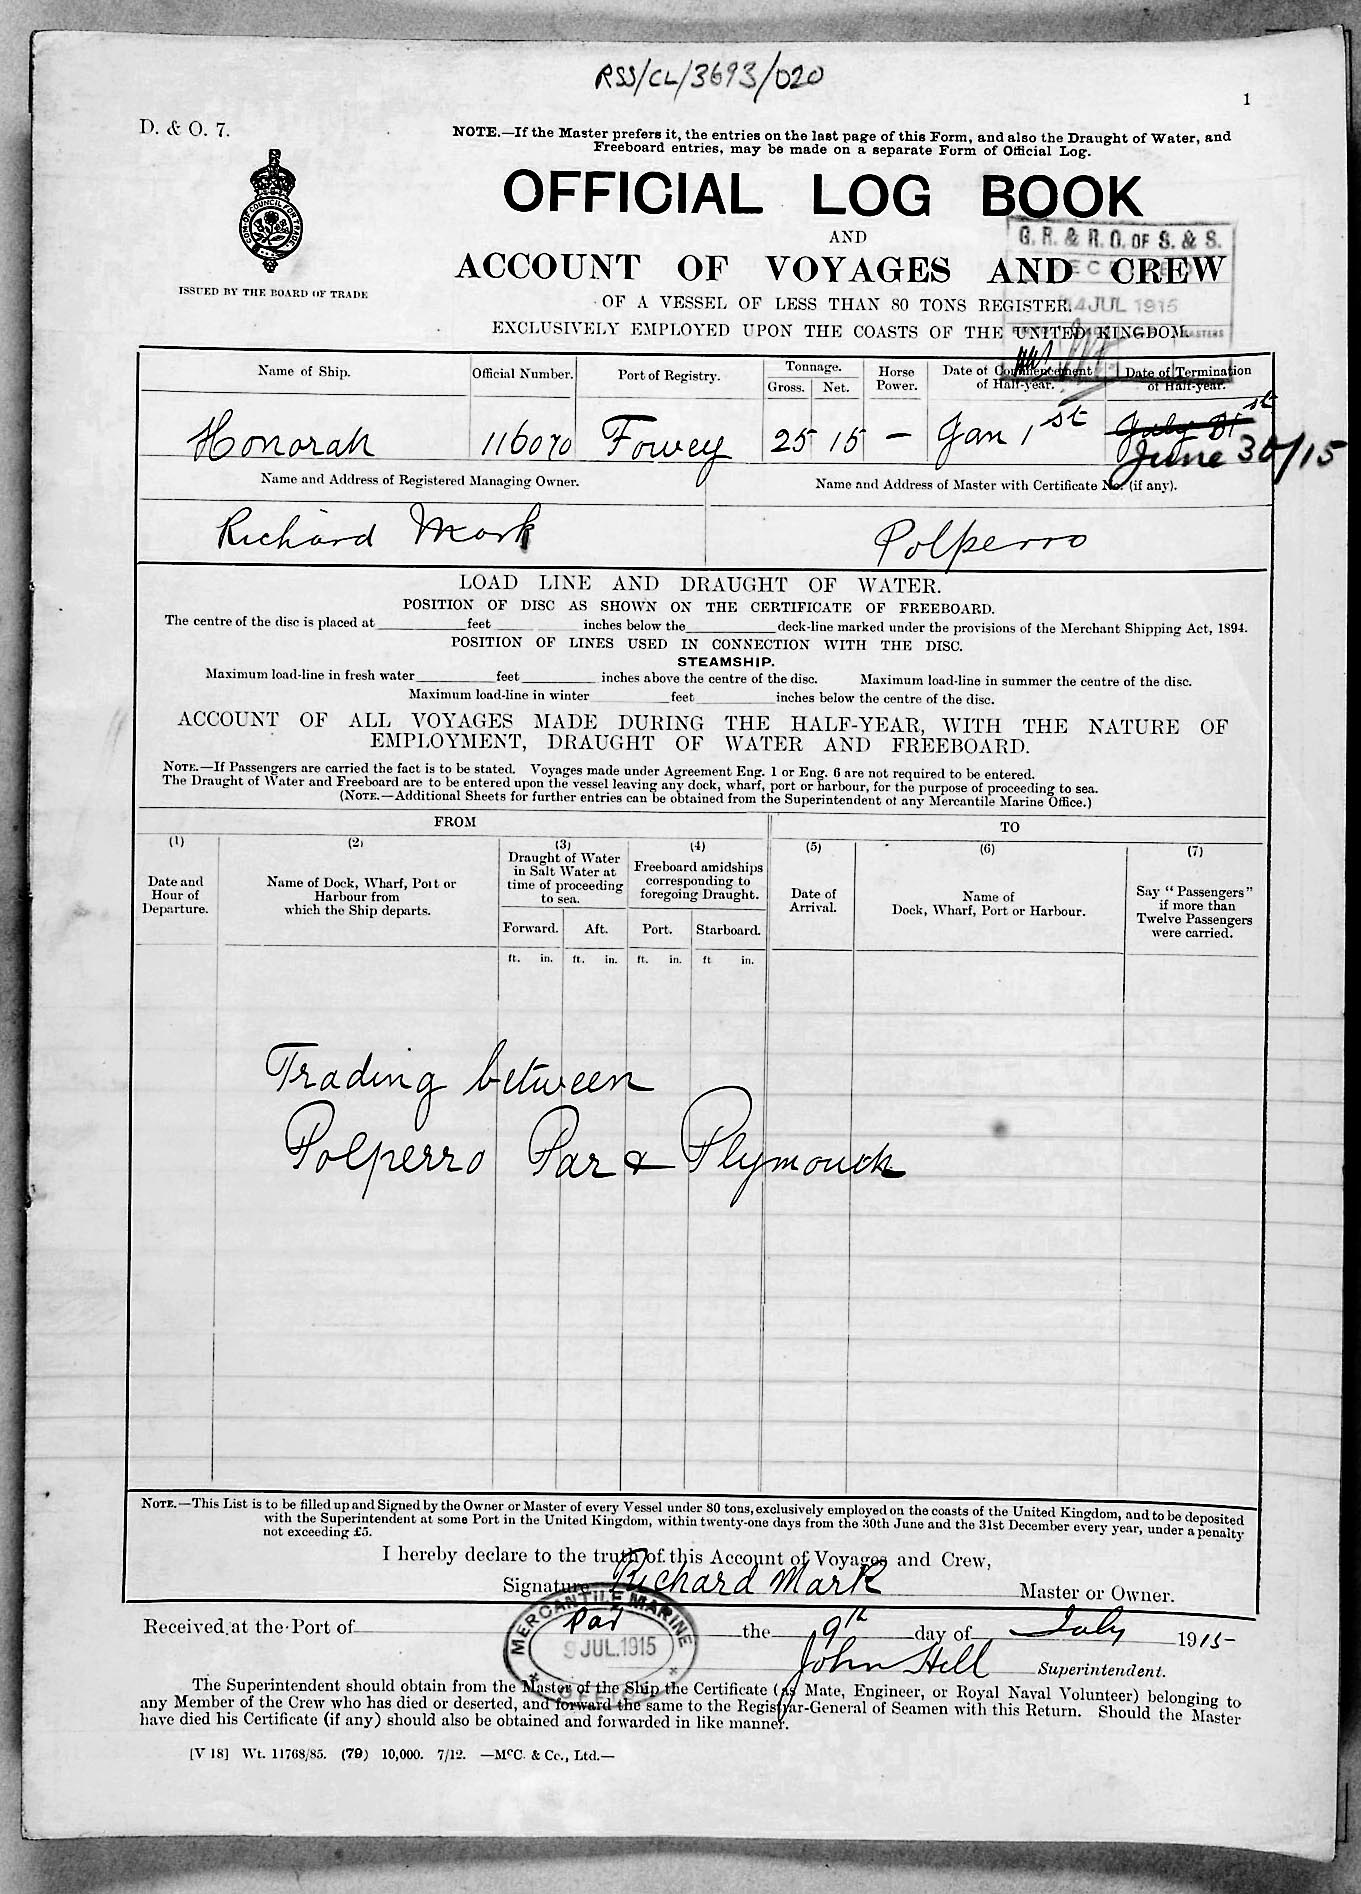 RSS/CL/3693/020
1
D. & O. 7.
NOTE.—If the Master prefers it, the entries on the last page of this Form, and also the Draught of Water, and
Freeboard entries, may be made on a separate Form of Official Log.
OFFICIAL LOG BOOK
AND
G. R. & R. O. OF S. & S.
ACCOUNT OF VOYAGES AND CREW
ISSUED BY THE BOARD OF TRADE
OF A VESSEL OF LESS THAN 80 TONS REGISTER.
4 JUL 1915
EXCLUSIVELY EMPLOYED UPON THE COASTS OF THE UNITED KINGDOM.
Name of Ship. Official Number. Port of Registry. Tonnage. Gross. Net. Horse Power. Date of Commencement of Half-year. Date of Termination of Half-year.
Honorah 116070 Fowey 25 15 — Jan 1st July 31st
June 30/15
Name and Address of Registered Managing Owner. Name and Address of Master with Certificate No. (if any).
Richard Mark Polperro
LOAD LINE AND DRAUGHT OF WATER.
POSITION OF DISC AS SHOWN ON THE CERTIFICATE OF FREEBOARD.
The centre of the disc is placed at feet inches below the deck-line marked under the provisions of the Merchant Shipping Act, 1894.
POSITION OF LINES USED IN CONNECTION WITH THE DISC.
STEAMSHIP.
Maximum load-line in fresh water feet inches above the centre of the disc. Maximum load-line in summer the centre of the disc.
Maximum load-line in winter feet inches below the centre of the disc.
ACCOUNT OF ALL VOYAGES MADE DURING THE HALF-YEAR, WITH THE NATURE OF
EMPLOYMENT, DRAUGHT OF WATER AND FREEBOARD.
NOTE.—If Passengers are carried the fact is to be stated. Voyages made under Agreement Eng. 1 or Eng. 6 are not required to be entered.
The Draught of Water and Freeboard are to be entered upon the vessel leaving any dock, wharf, port or harbour, for the purpose of proceeding to sea.
(NOTE.—Additional Sheets for further entries can be obtained from the Superintendent of any Mercantile Marine Office.)
FROM TO
(1) (2) (3) (4) (5) (6) (7)
Date and Hour of Departure.
Name of Dock, Wharf, Port or Harbour from which the Ship departs.
Draught of Water in Salt Water at time of proceeding to sea.
Freeboard amidships corresponding to foregoing Draught.
Date of Arrival.
Name of Dock, Wharf, Port or Harbour.
Say "Passengers" if more than Twelve Passengers were carried.
Forward. Aft. Port. Starboard.
ft. in. ft. in. ft. in. ft in.
Trading between
Polperro Par & Plymouth
NOTE.—This List is to be filled up and Signed by the Owner or Master of every Vessel under 80 tons, exclusively employed on the coasts of the United Kingdom, and to be deposited
with the Superintendent at some Port in the United Kingdom, within twenty-one days from the 30th June and the 31st December every year, under a penalty
not exceeding £5.
I hereby declare to the truth of this Account of Voyages and Crew,
Signature Richard Mark Master or Owner.
Received at the Port of Par the 9th day of July 1915
MERCANTILE MARINE OFFICE
9 JUL.1915
John Hill Superintendent.
The Superintendent should obtain from the Master of the Ship the Certificate (as Mate, Engineer, or Royal Naval Volunteer) belonging to
any Member of the Crew who has died or deserted, and forward the same to the Registrar-General of Seamen with this Return. Should the Master
have died his Certificate (if any) should also be obtained and forwarded in like manner.
[V 18] Wt. 11768/85. (79) 10,000. 7/12. —McC. & Co., Ltd.—